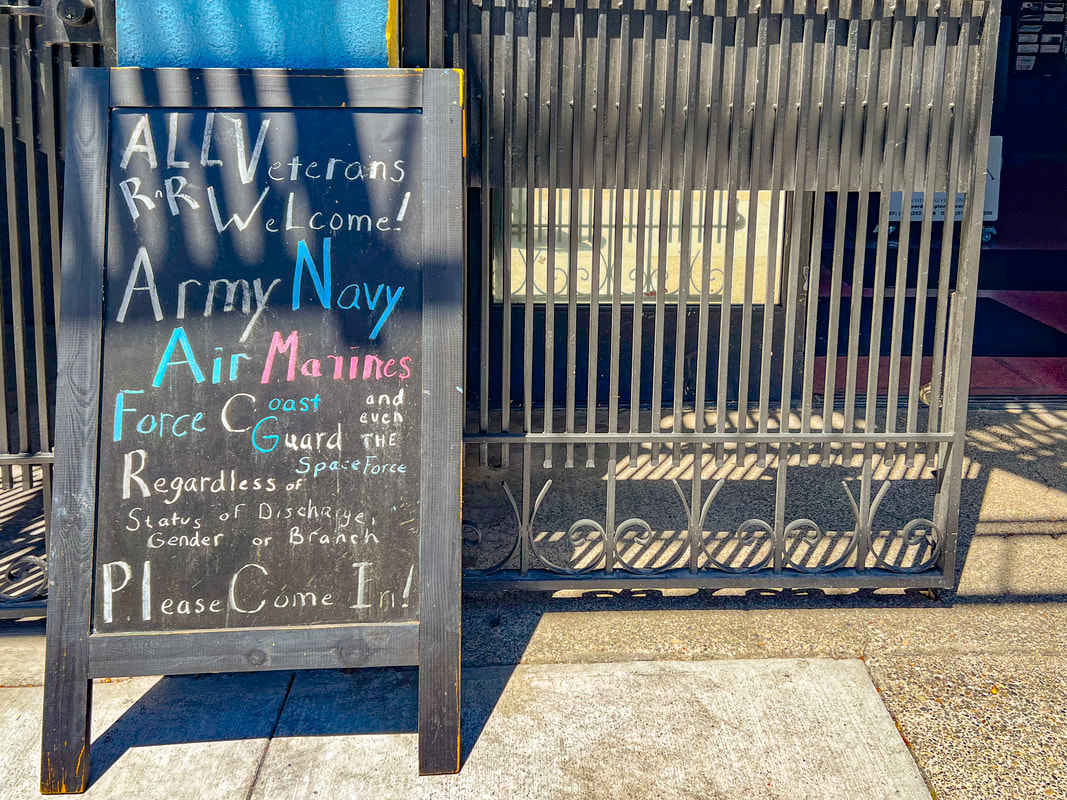 ALL Veterans
R-R Welcome!
Army Navy
Air Marines
Force Coast Guard and even THE Space Force
Regardless of
Status of Discharge,
Gender or Branch
Please Come In!